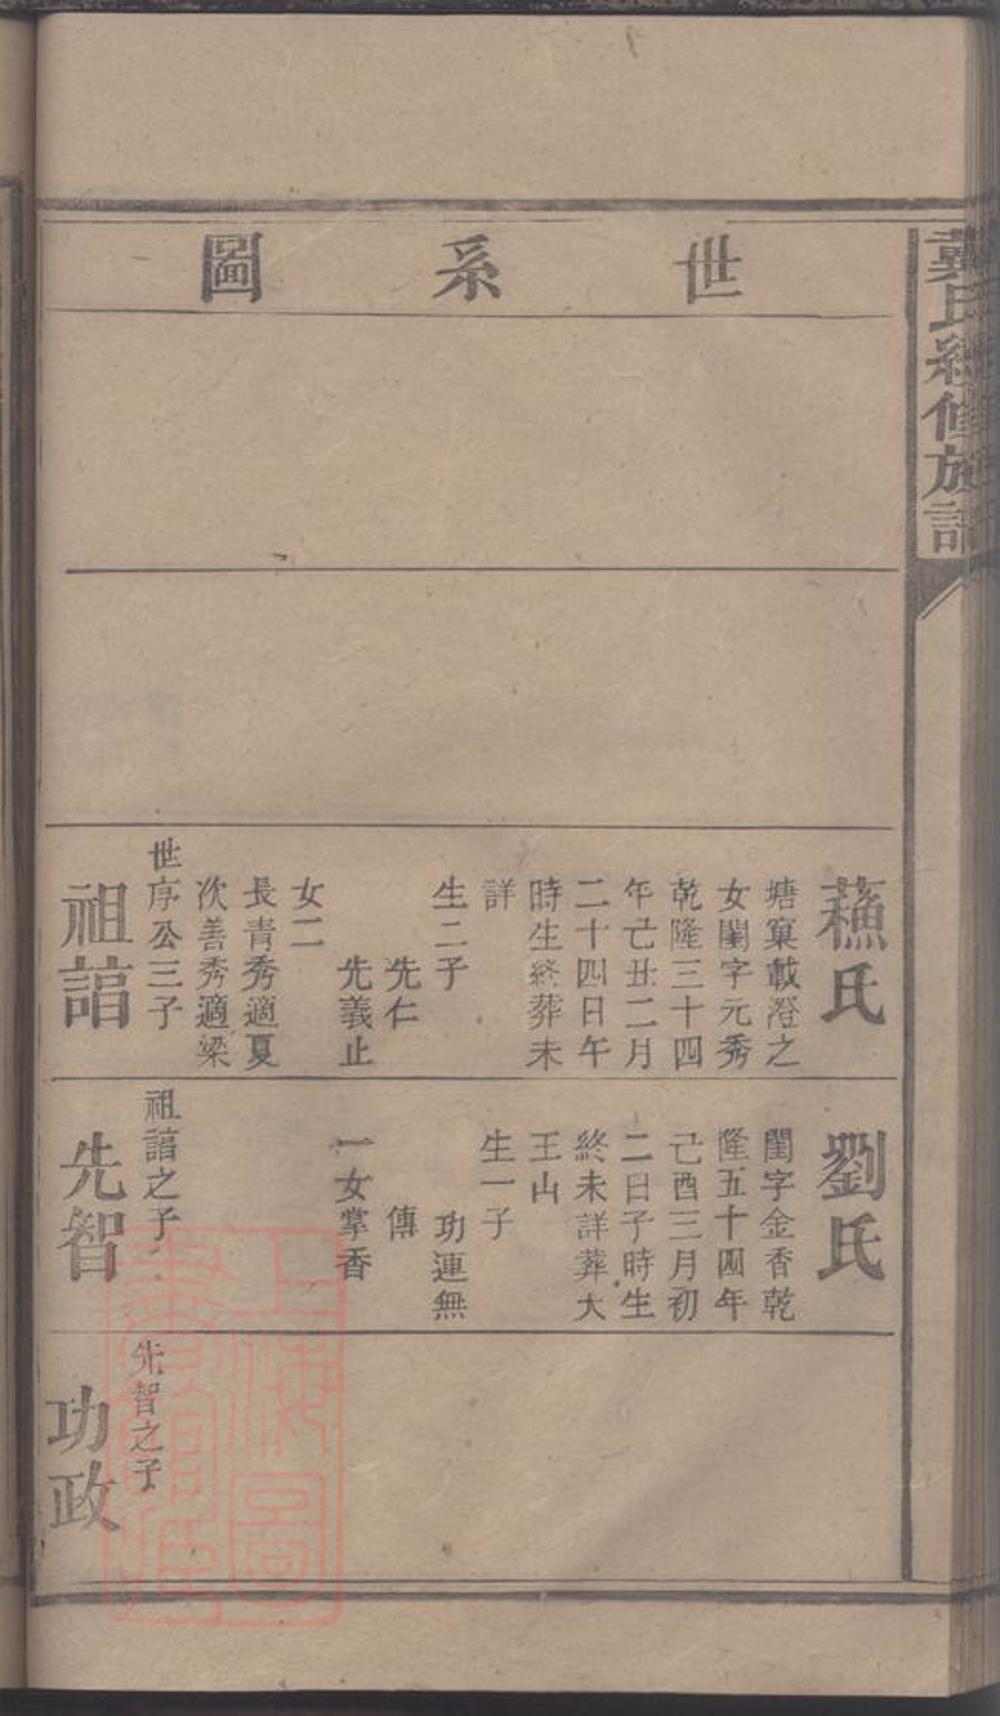 世系圖
戴氏經修族譜
蘓氏
塘窠戴澄之
女閨字元秀
乾隆三十四
年己丑二月
二十四日午
時生終葬未
詳
生二子
先仁
先義止
女二
長青秀適夏
次善秀適梁
祖䛻
世序公三子
劉氏
閨字金香乾
隆五十四年
己酉三月初
二日子時生
終未詳葬大
王山
生一子
功連無
傳
一女掌香
先智
祖䛻之子
功政
先智之子
上海圖書館藏